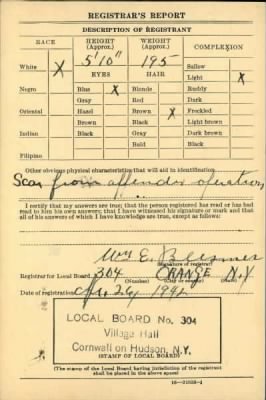 REGISTRAR'S REPORT
DESCRIPTION OF REGISTRANT
RACE HEIGHT (Approx.) WEIGHT (Approx.) COMPLEXION
5'10" 195
White X Sallow
EYES HAIR Light X
Negro Blue X Blonde Ruddy
Gray Red Dark
Oriental Hazel Brown X Freckled
Brown Black Light brown
Indian Black Gray Dark brown
Bald Black
Filipino
Other obvious physical characteristics that will aid in identification
Scar from appendix operation
I certify that my answers are true; that the person registered has read or has had
read to him his own answers; that I have witnessed his signature or mark and that
all of his answers of which I have knowledge are true, except as follows:
Wm E.
Signature of registrar
Registrar for Local Board 304 ORANGE N.Y
(Number) (City or county) (State)
Date of registration 26, 1942
LOCAL BOARD No. 304
Village Hall
Cornwall on Hudson, N.Y.
(STAMP OF LOCAL BOARD)
(The stamp of the Local Board having jurisdiction of the registrant
shall be placed in the above space)